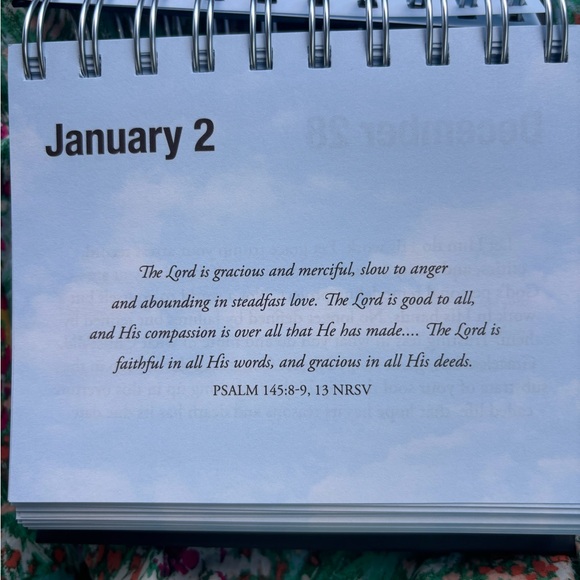 January 2
The Lord is gracious and merciful, slow to anger
and abounding in steadfast love. The Lord is good to all,
and His compassion is over all that He has made.... The Lord is
faithful in all His words, and gracious in all His deeds.
PSALM 145:8-9, 13 NRSV